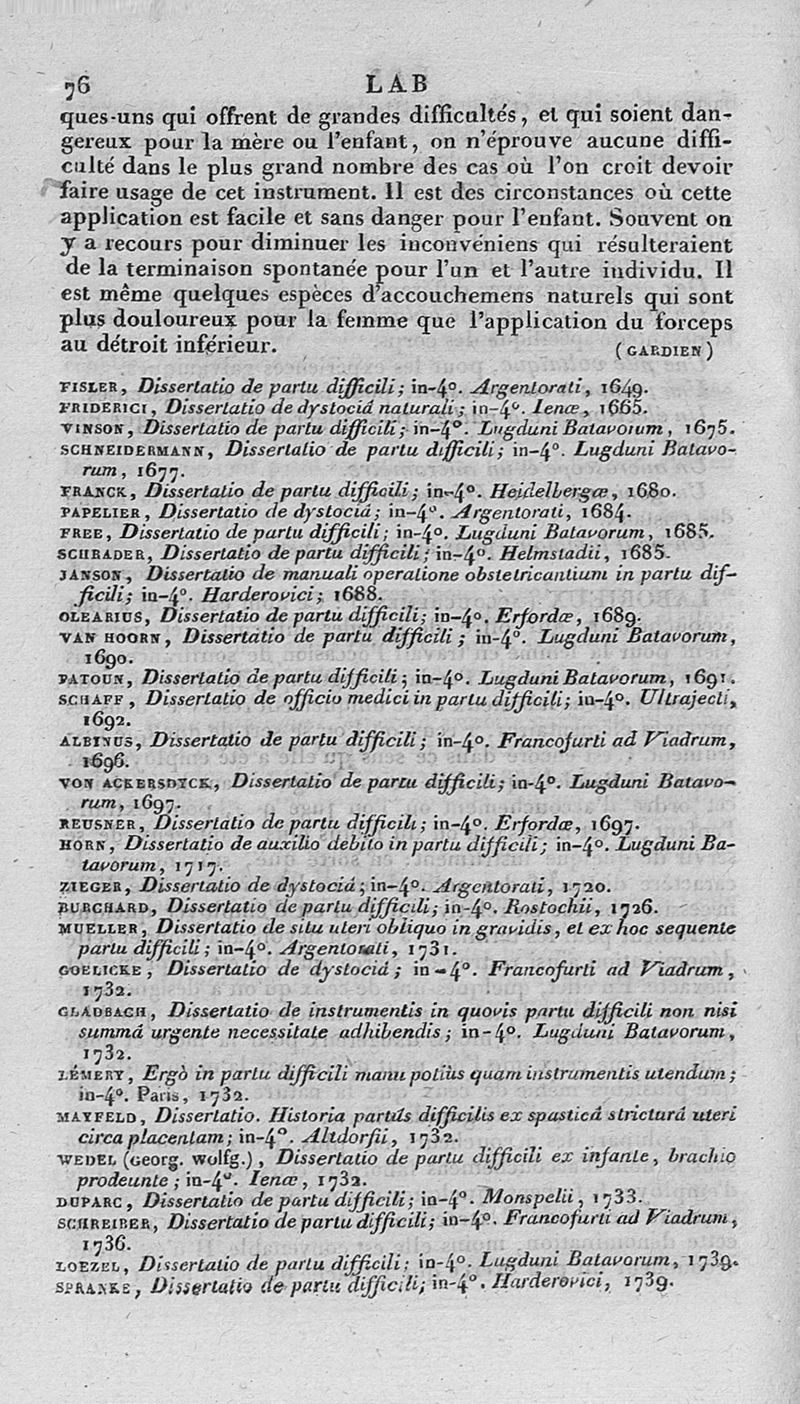 76 LAB
ques-uns qui offrent de grandes difficultés, et qui soient dan-
gereux pour la mère ou l'enfant, on n'éprouve aucune diffi-
culté dans le plus grand nombre des cas où l'on croit devoir
faire usage de cet instrument. Il est des circonstances où cette
application est facile et sans danger pour l'enfant. Souvent on
y a recours pour diminuer les inconvéniens qui résulteraient
de la terminaison spontanée pour l'un et l'autre individu. Il
est même quelques espèces d'accouchemens naturels qui sont
plus douloureux pour la femme que l'application du forceps
au détroit inférieur. (GARDIEN)
FISLER, Dissertatio de partu difficili; in-4°. Argentorati, 1649.
FRIDERICI, Dissertatio de dystociâ naturali; in-4°. Ienæ, 1665.
VINSON, Dissertatio de partu difficili; in-4°. Lugduni Batavorum, 1675.
SCHNEIDERMANN, Dissertatio de partu difficili; in-4°. Lugduni Batavo-
rum, 1677.
FRANCK, Dissertatio de partu difficili; in-4°. Heidelbergæ, 1680.
PAPELIER, Dissertatio de dystociâ; in-4°. Argentorati, 1684.
FREE, Dissertatio de partu difficili; in-4°. Lugduni Batavorum, 1685.
SCHRADER, Dissertatio de partu difficili; in-4°. Helmstadii, 1685.
JANSON, Dissertatio de manuali operatione obstetricantium in partu dif-
ficili; in-4°. Harderovici; 1688.
OLEARIUS, Dissertatio de partu difficili; in-4°. Erfordæ, 1689.
VAN HOORN, Dissertatio de partu difficili; in-4°. Lugduni Batavorum,
1690.
PATOUN, Dissertatio de partu difficili; in-4°. Lugduni Batavorum, 1691.
SCHAFF, Dissertatio de officio medici in partu difficili; in-4°. Ultrajecti,
1692.
ALBINUS, Dissertatio de partu difficili; in-4°. Francofurti ad Viadrum,
1696.
VON ACKERSDYCK, Dissertatio de partu difficili; in-4°. Lugduni Batavo-
rum, 1697.
REUSNER, Dissertatio de partu difficili; in-4°. Erfordæ, 1697.
HORN, Dissertatio de auxilio debito in partu difficili; in-4°. Lugduni Ba-
tavorum, 1717.
ZIEGER, Dissertatio de dystociâ; in-4°. Argentorati, 1720.
BURCHARD, Dissertatio de partu difficili; in-4°. Rostochii, 1726.
MUELLER, Dissertatio de situ uteri obliquo in gravidis, et ex hoc sequente
partu difficili; in-4°. Argentorati, 1731.
GOELICKE, Dissertatio de dystociâ; in-4°. Francofurti ad Viadrum,
1732.
GLADBACH, Dissertatio de instrumentis in quovis partu difficili non nisi
summâ urgente necessitate adhibendis; in-4°. Lugduni Batavorum,
1732.
LÉMERY, Ergò in partu difficili manu potiùs quam instrumentis utendum;
in-4°. Paris, 1732.
MAYFELD, Dissertatio. Historia partûs difficilis ex spasticâ stricturâ uteri
circa placentam; in-4°. Altdorfii, 1732.
WEDEL (Georg. Wolfg.), Dissertatio de partu difficili ex infante, brachio
prodeunte; in-4°. Ienæ, 1732.
DUPARC, Dissertatio de partu difficili; in-4°. Monspelii, 1733.
SCHREIBER, Dissertatio de partu difficili; in-4°. Francofurti ad Viadrum,
1736.
LOEZEL, Dissertatio de partu difficili; in-4°. Lugduni Batavorum, 1739.
SPRANKE, Dissertatio de partu difficili; in-4°. Harderovici, 1739.